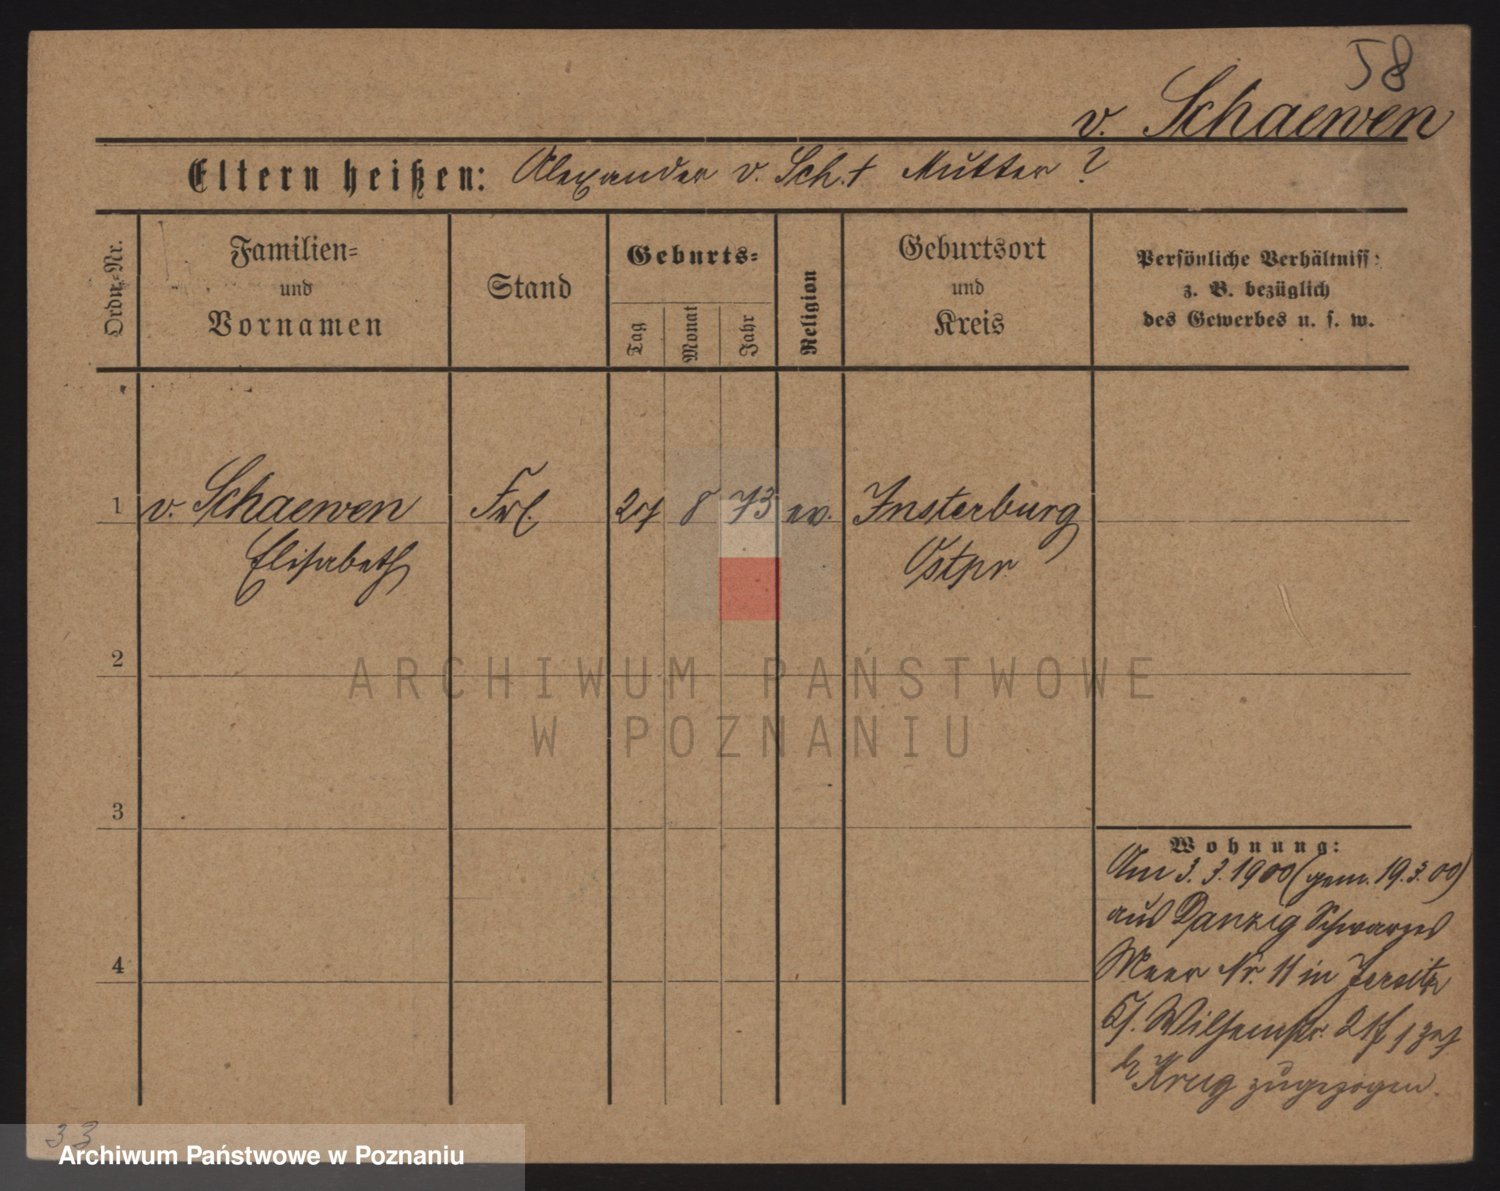 58
v. Schaewen
Eltern heißen: Alexander v. Sch. † Mutter ?
Ordn.-Nr.
Familien-
und
Vornamen
Stand
Geburts-
Tag
Monat
Jahr
Religion
Geburtsort
und
Kreis
Persönliche Verhältniss:
z. B. bezüglich
des Gewerbes u. s. w.
1 v. Schaewen Frl. 27 8 73 ev. Insterburg
Elisabeth Ostpr.
2
ARCHIWUM PAŃSTWOWE
W POZNANIU
3
Wohnung:
Am 3. 3. 1900 (gem. 19. 3. 00)
aus Danzig Schwarzes
Meer Nr. 11 in Jersitz
4
Wilhemstr.
Krug zugezogen.
33
Archiwum Państwowe w Poznaniu